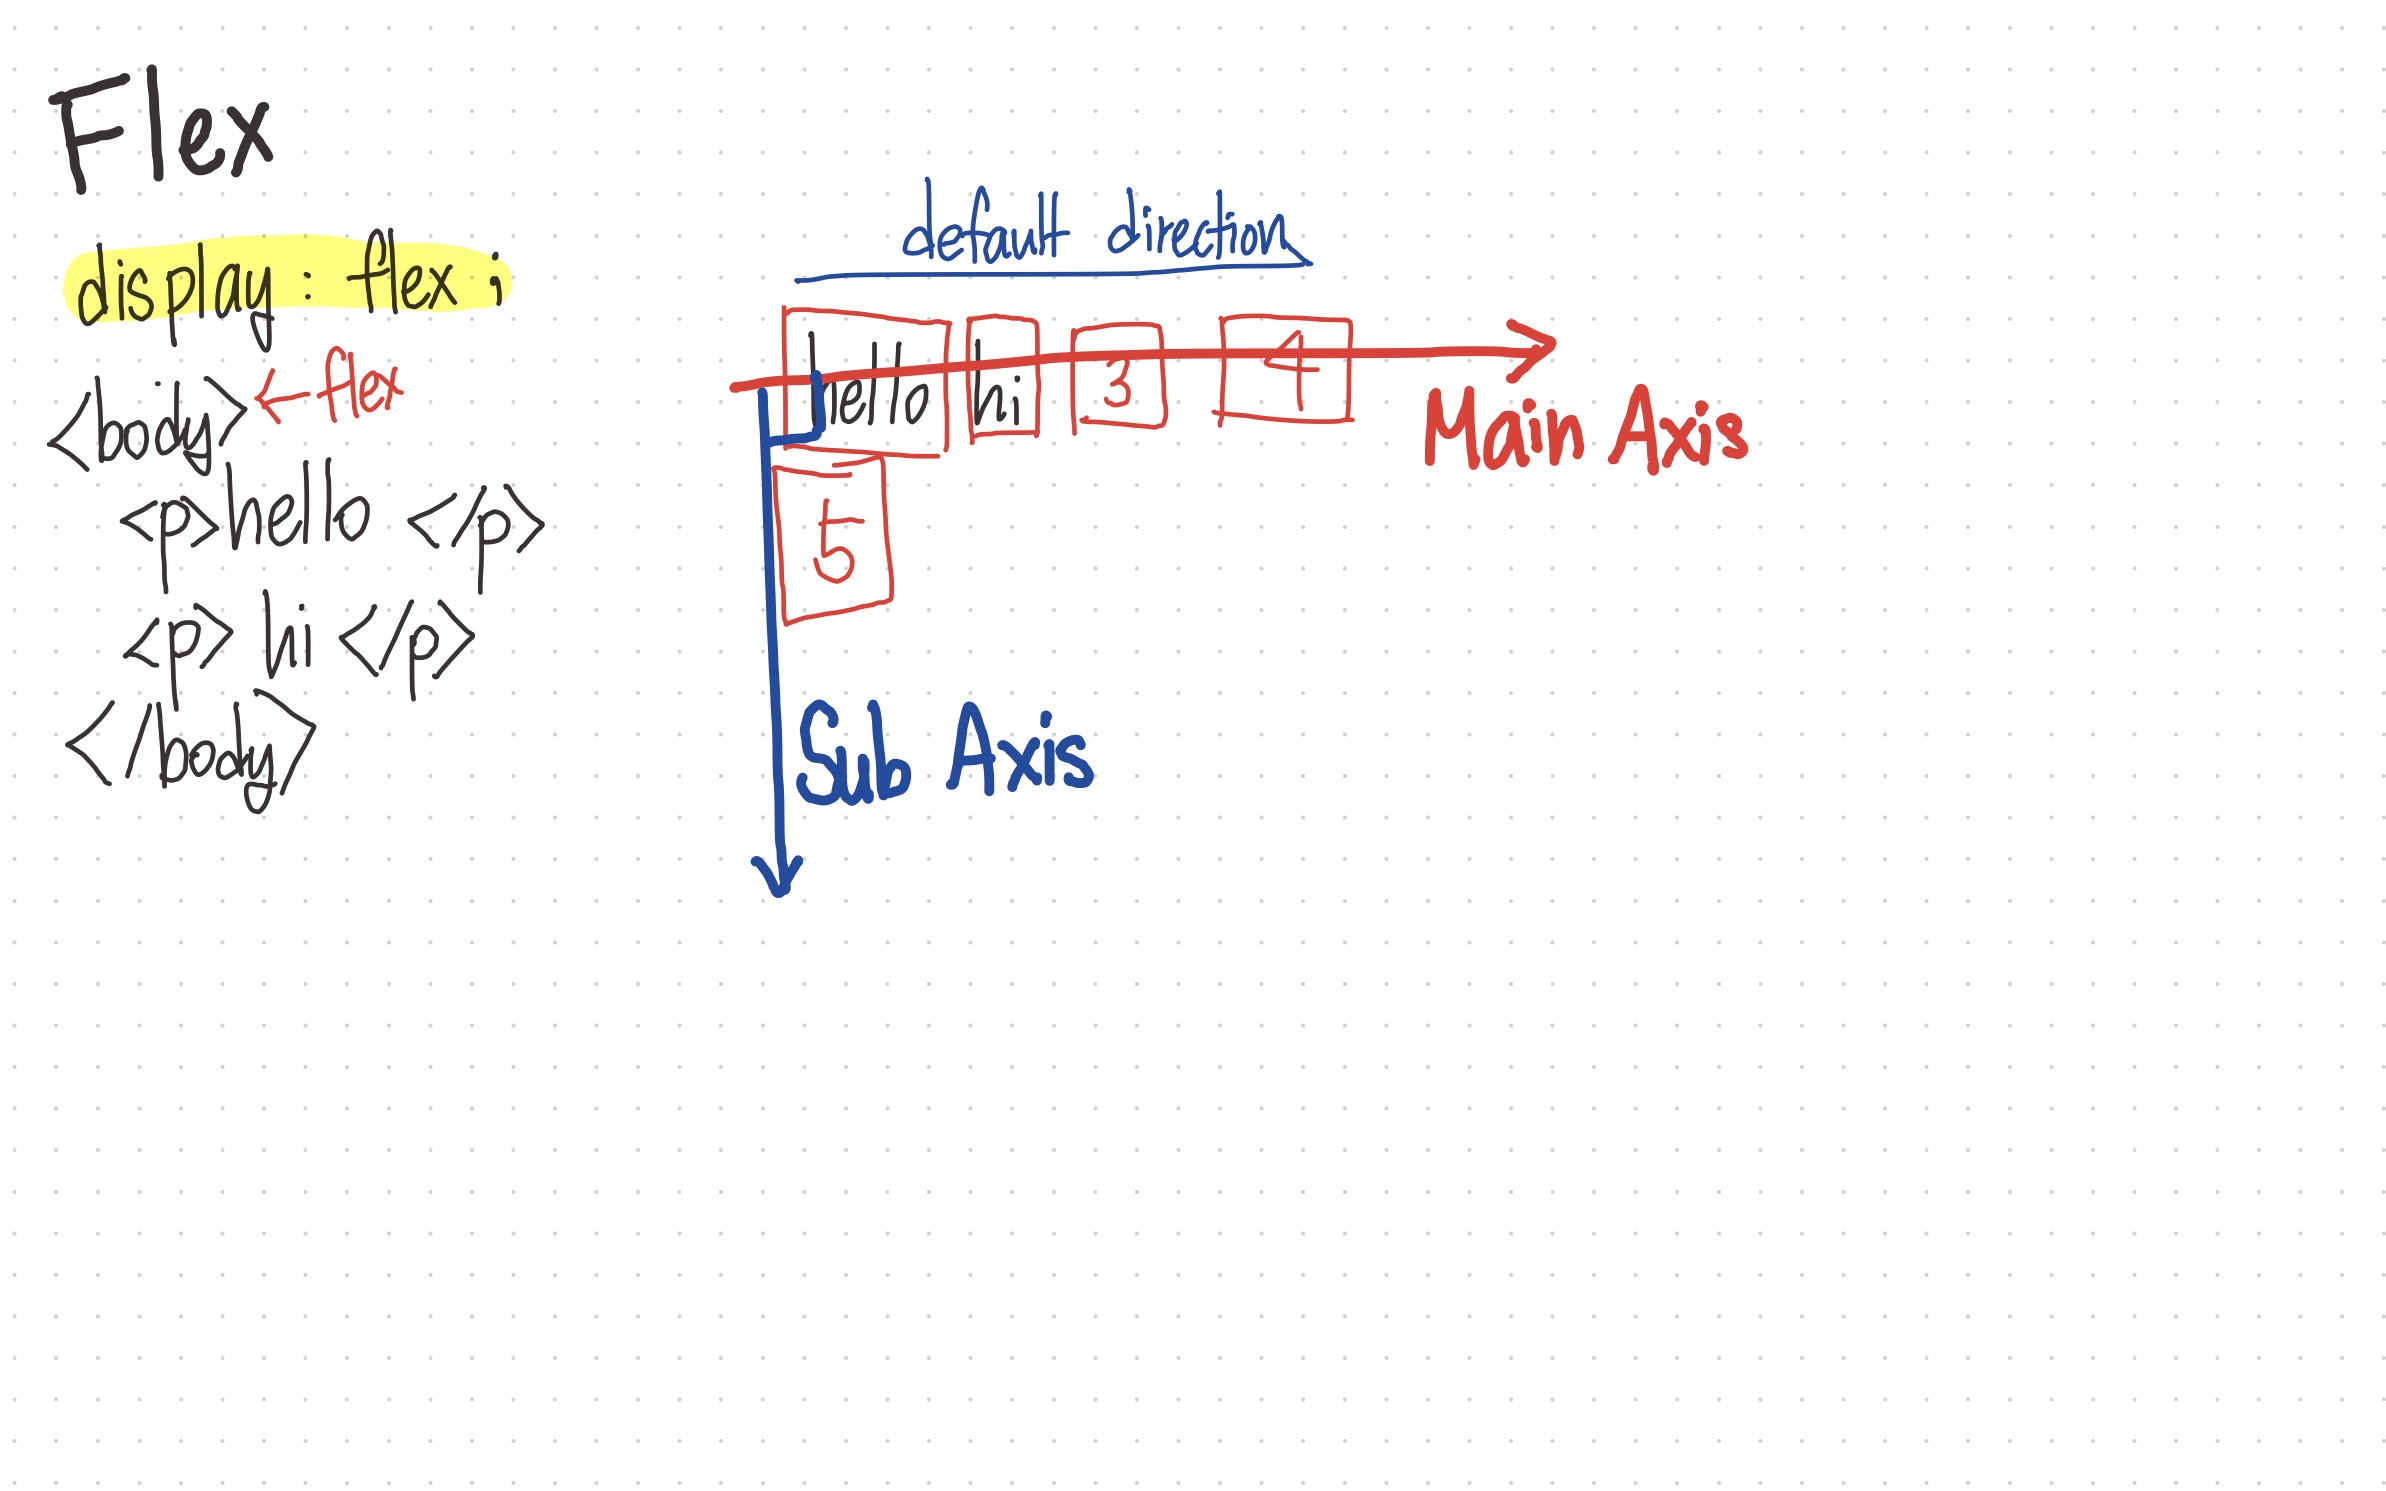 Flex
display: flex;
<body> ← flex
<p>hello </p>
<p> hi </p>
</body>
default direction
hello hi 3 4
Main Axis
5
Sub Axis